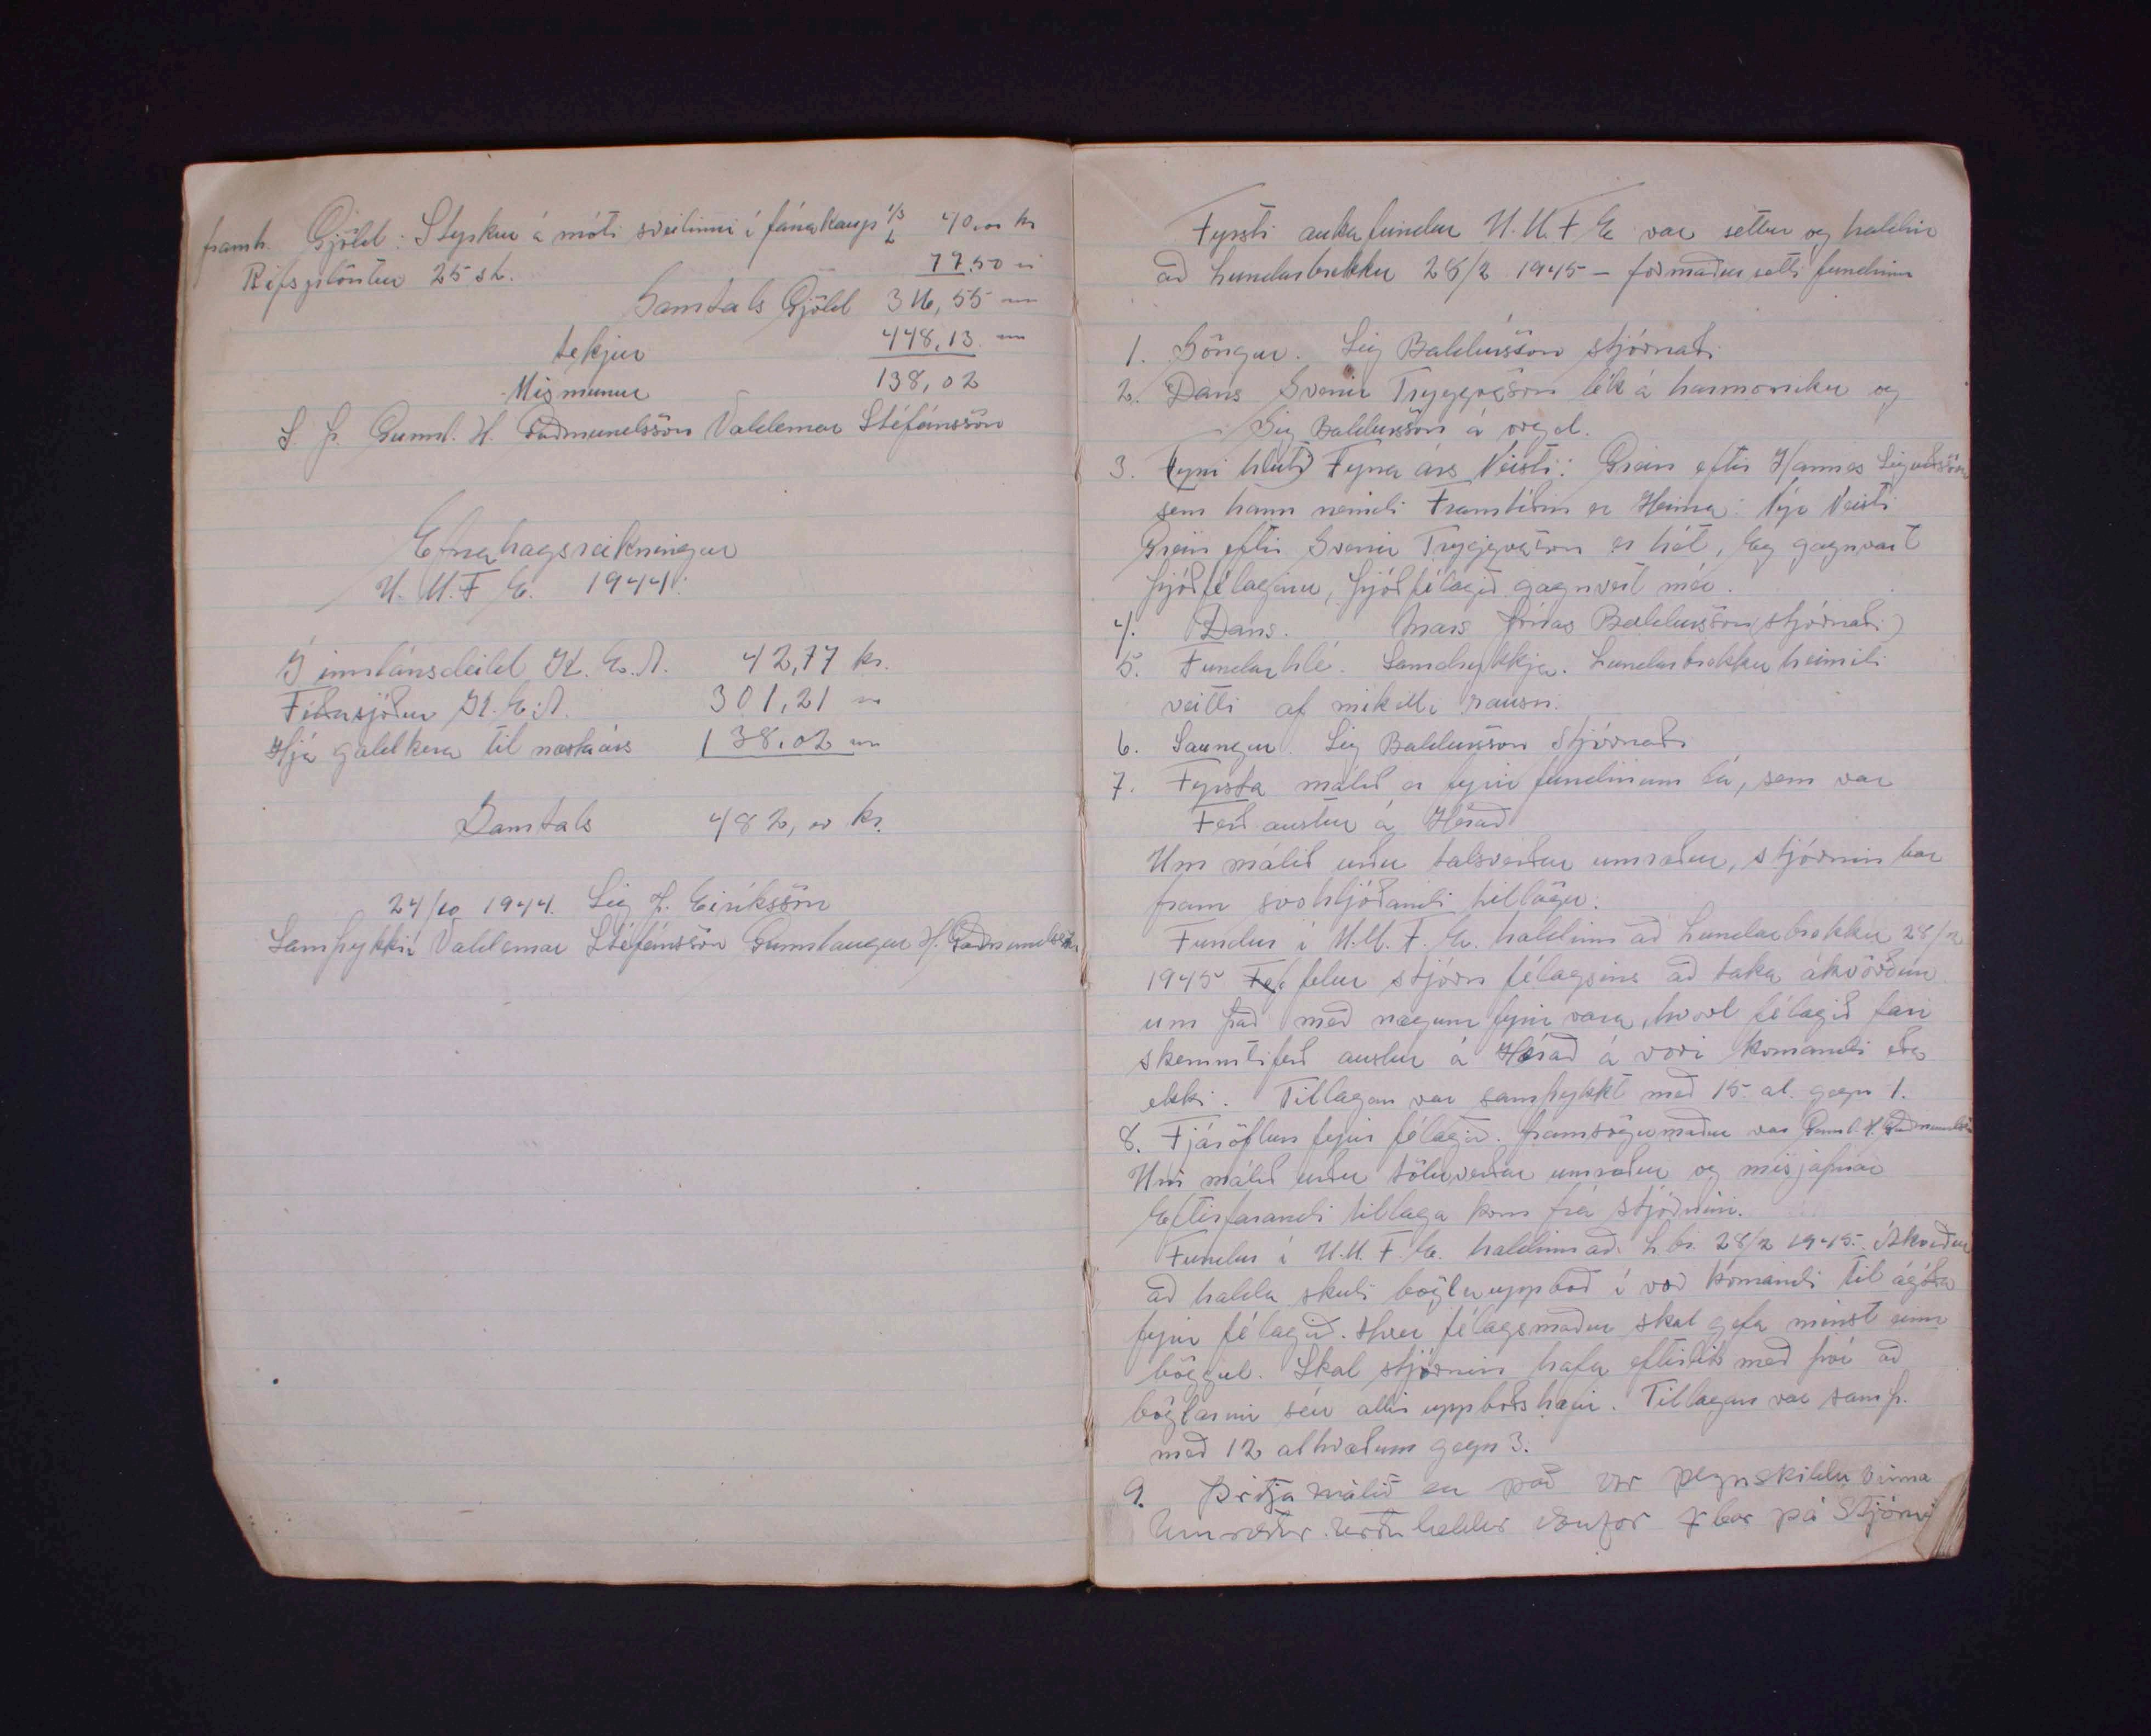 framh. Gjöld: Styrkur á móti sveitinni í fánakaup 1/3 40,00 kr
Rifsplöntur 25 st. 77.50 "
Samtals Gjöld 316,55 "
tekjur 448.13 "
Mismunur 138,02
S Þ. Gunnl. H. Guðmundsson Valdemar Stéfánsson
Efnahagsreikningur
U. M. F. E. 1944.
Í innlánsdeild K. E. A. 42,77 kr.
Féðasjóður K. E. A. 301,21 "
Hjá galdkera til næsta árs 138.02 "
Samtals 482,00 kr.
24/10 1944. Sig Þ. Eiríksson
Samþykkir Valdemar Stéfánsson Gunnlaugur H. Guðmundsson
Fyrsti aukafundur U.M.F E var settur og haldin
að Lundarbrekku 28/2 1945 – formaður setti fundinn
1. Söngur. Sig Baldursson stjórnaði
2. Dans Sverrir Tryggvason lék á harmoniku og
Sig Baldursson á orgel.
3. Fyrri hluti Fyrra árs Neisti: Grein eftir Hannes Sigurðsson
sem hann nemdi Framtíðin er Heima: Nýr Neisti
Grein eftir Sverrir Tryggvason er hét, Eg gagnvart
þjóðfélaginu, þjóðfélagið gagnvart mér.
4. Dans. Mars Jónas Baldursson stjórnaði)
5. Fundarhlé. Samdrykkja. Lundarbrekku heimili
veitti af mikilli rausn.
6. Saungur. Sig Baldursson stjórnaði
7. Fyrsta málið er fyrir fundinum lá, sem var
Ferð austur á Hérað
Um málið urðu talsverður umræður, stjórnin bar
fram svohljóðandi tillögu.
Fundur í U.M.F.E. haldinn að Lundarbrekku 28/2
1945 Fel felur stjórn félagsins að taka ákvörðun
um það með nægum fyrir vara, hvort félagið fari
skemmtiferð austur á Hérað á vori komandi eða
ekki. Tillagan var samþykkt með 15 at. gegn 1.
8. Fjáröflun fyrir félagið. framsögumaður var Gunnl. H. Guðmundsson
Um málið urðu töluverðar umræður og misjafnar
Eftirfarandi tillaga kom frá stjórninni.
Fundur í U.M.F.E. haldinn að L.br. 28/2 1945. Ákveður
að halda skuli bögluuppboð í vor komandi til ágóða
fyrir félagið. Hver félagsmaður skal gefa minst einn
böggul. Skal stjórnin hafa eftirlit með því að
böglarnir séu allir uppboðshæfir. Tillagan var samþ.
með 12 atkvæðum gegn 3.
9. Þriðja málið er það var þegnskildu vinna
Umræður urðu heldur daufar bar þá Stjórn